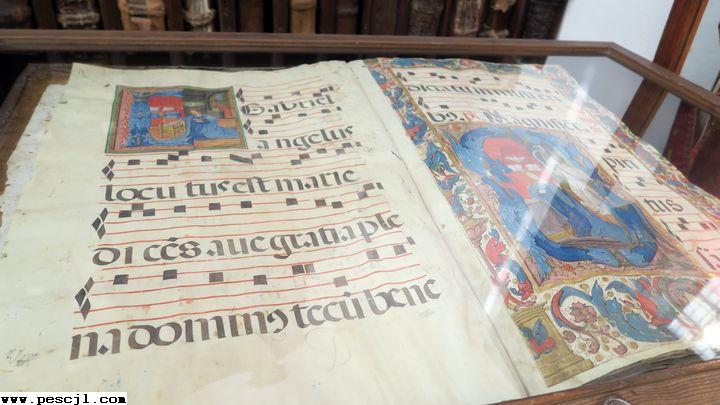 Gabriel
angelus
locutus est marie
dicēs ave gratia ple
na dominꝯ tecū bene
Magnifica
tus
www.pescjl.com